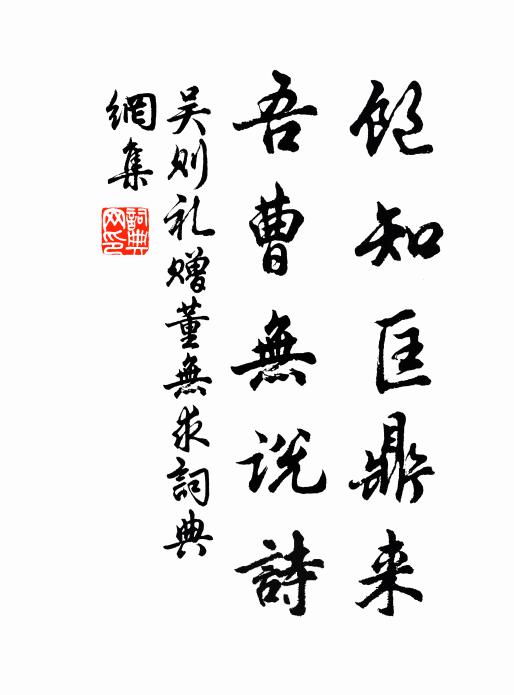 飽知匡鼎来
吾曹無説詩
吴则礼赠董無求詞典
網集
詞典网印